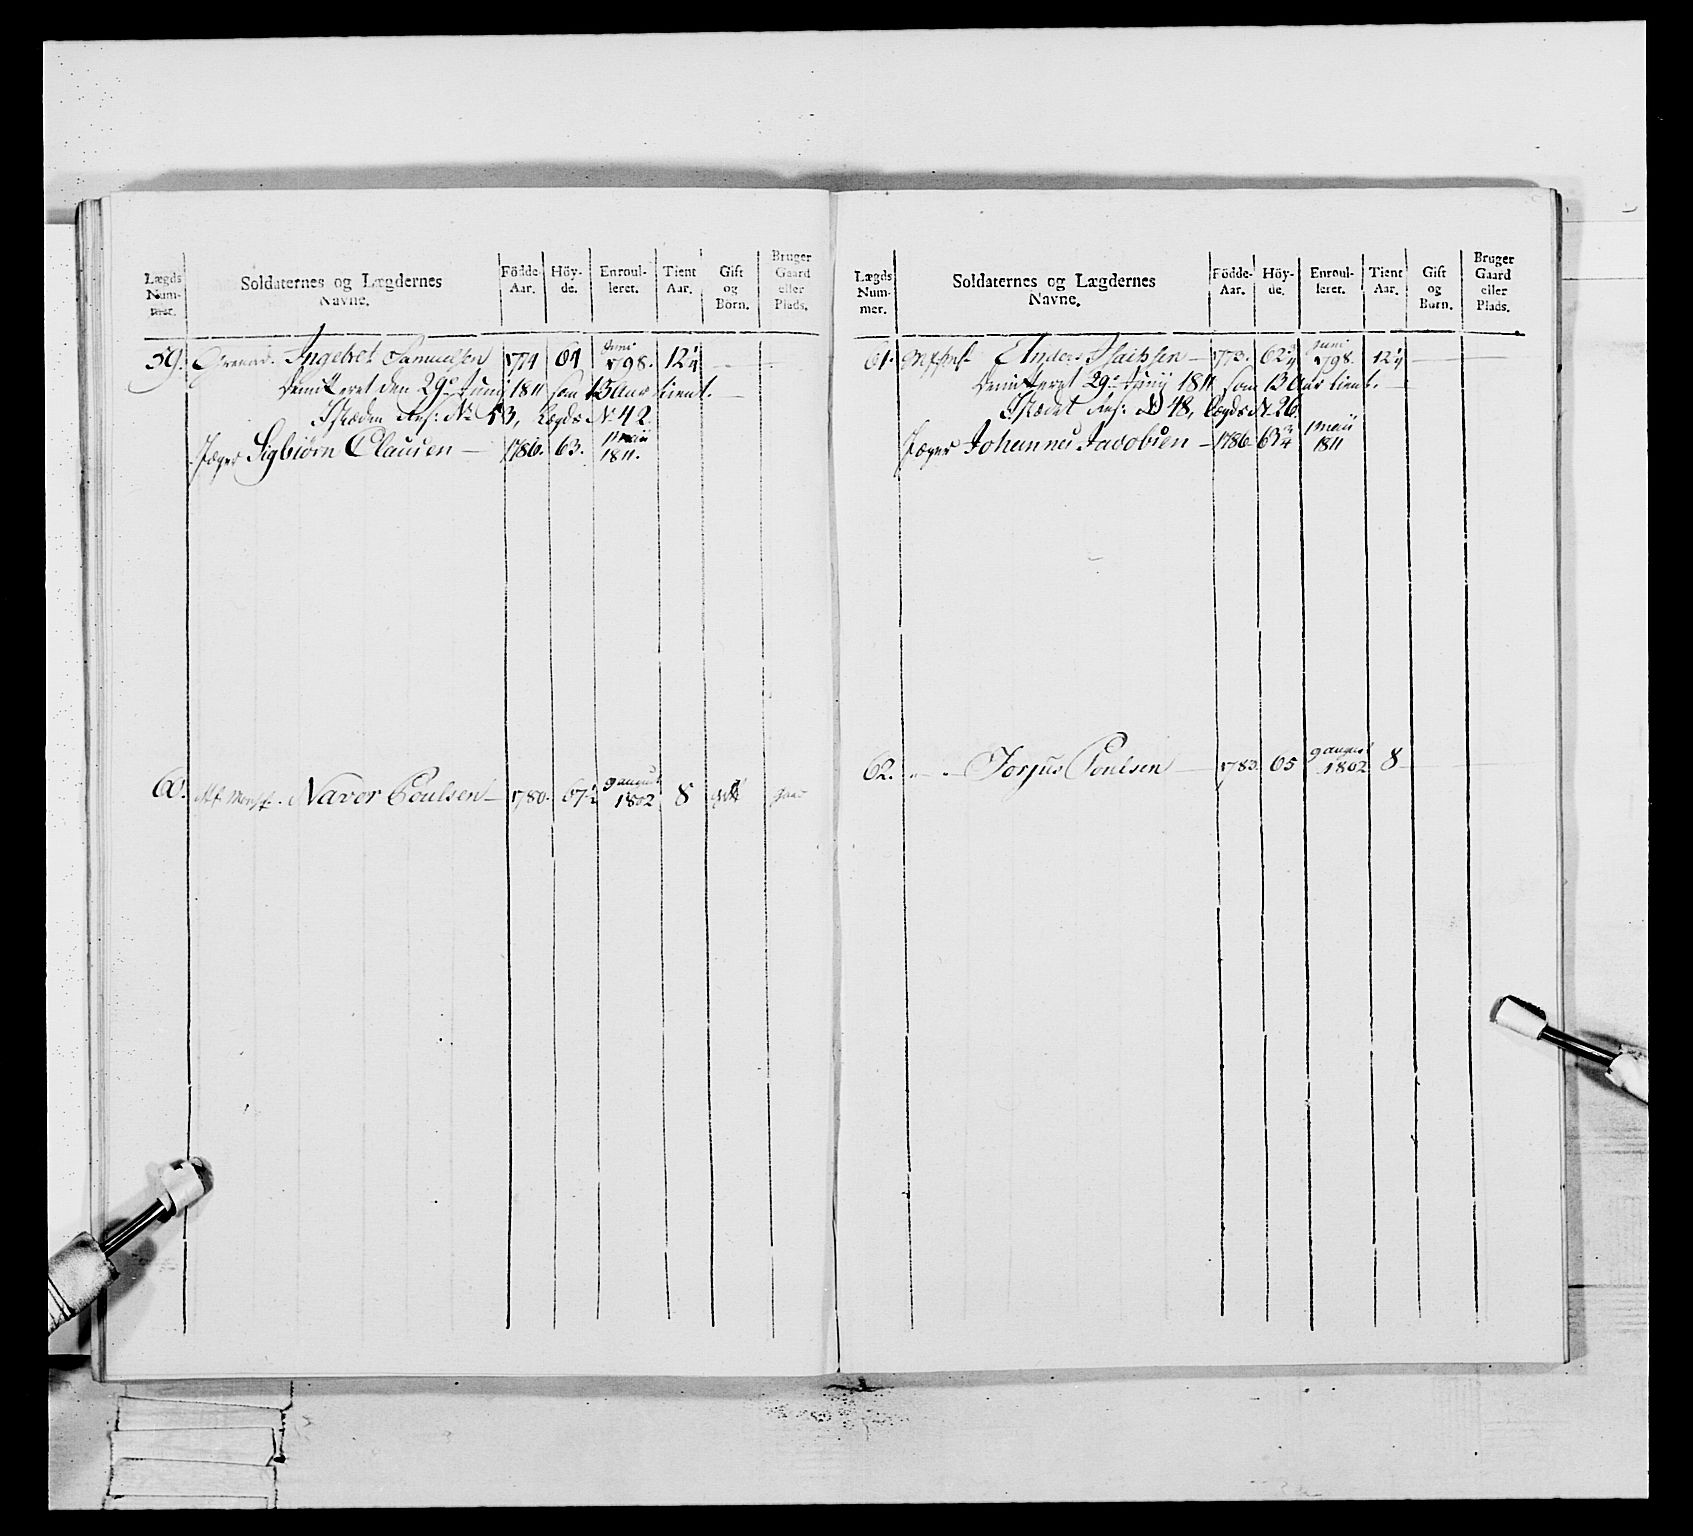 Lægds Num- mer. Soldaternes og Lægdernes Navne. Födde Aar. Höy- de. Enroul- leret. Tient Aar. Gift og Born. Bruger Gaard eller Plads.
59. Grenad. Ingebret Samuelsen 1774 64 Juni 1798. 12¼
Demitteret den 29de Junij 1811 som 13 Aar tient.
I Stæden Res: No 53, Lægds No 42.
Jæger Sigbiörn Clausen 1786. 63. 1811.
60. Navor Poulsen 1780. 67½ 9 august 1802 8 gift
Lægds Num- mer. Soldaternes og Lægdernes Navne. Födde- Aar. Höy- de. Enroul- leret. Tient Aar. Gift og Børn. Bruger Gaard eller Plads.
61. Anders 1773. 62¾ Juni 1798. 12¼
Demitteret 29de Junij 1811 som 13 Aar tient.
I Stædet Res: No 48, Lægds No 26.
Jæger Johannes Jacobsen 1786 63¼ 1811
62. " " Torjus Poulsen 1783. 65 9 august 1802 8